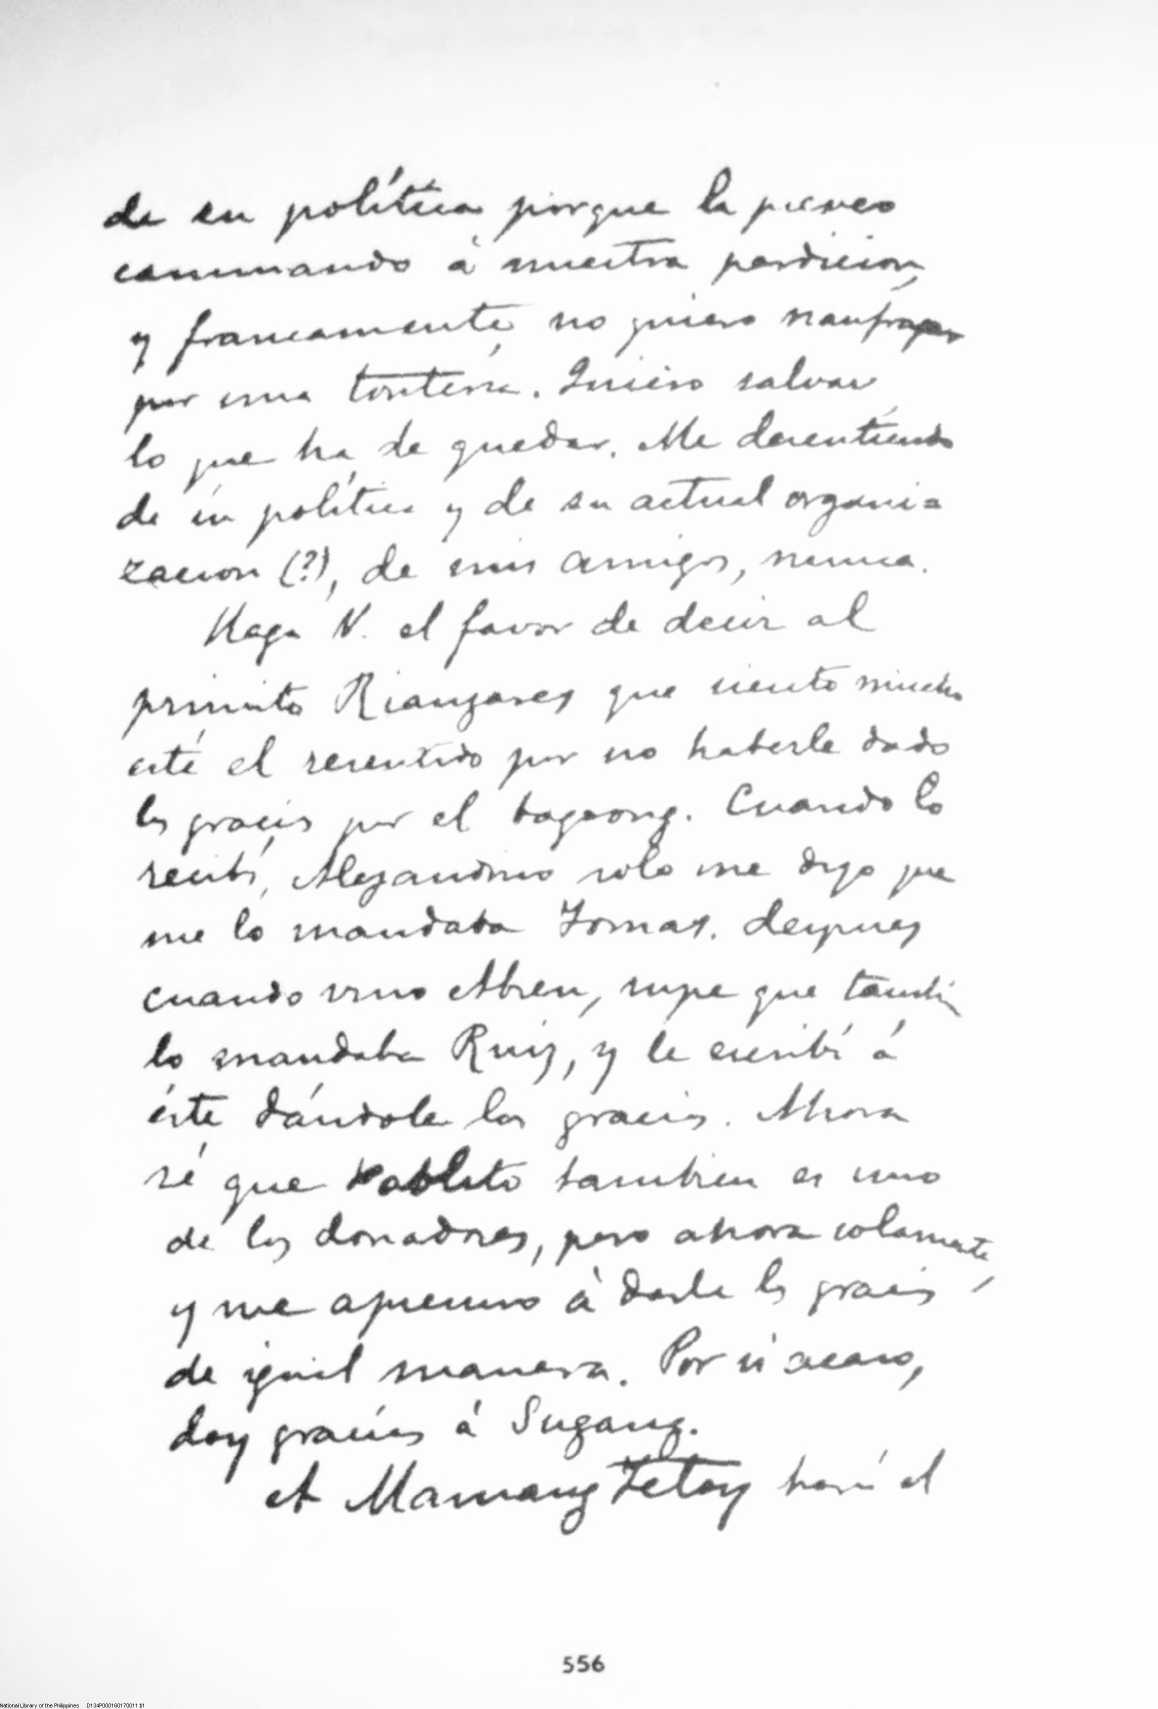 de su política porque la preveo
caminando á nuestra perdicion,
y francamente, no quiero naufragar
por una tontería. Quiero salvar
lo que ha de quedar. Me desentiendo
de su política y de su actual organi=
zacion (?), de mis amigos, nunca.
Haga V. el favor de decir al
primito Rianzares que siento mucho
esté el resentido por no haberle dado
las gracias por el bagoong. Cuando lo
recibí, Alejandrino solo me dijo que
me lo mandaba Tomas. Despues
cuando vino Abreu, supe que tambien
lo mandaba Ruiz, y le escribí á
éste dándole las gracias. Ahora
sé que Pablito tambien es uno
de los donadores, pero ahora solamente,
y me apresuro á darle las gracias
de igual manera. Por si acaso,
doy gracias á Sugang.
A Mamang Tetay hará el
556
National Library of the Philippines